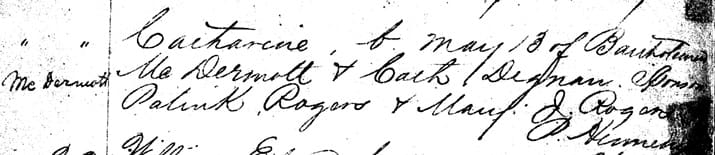 " " Catharine, b May 13 of Bartholomew
McDermott Mc Dermott & Cath Degnan. Sponsors
Patrick Rogers & Mary J. Rogers
P.